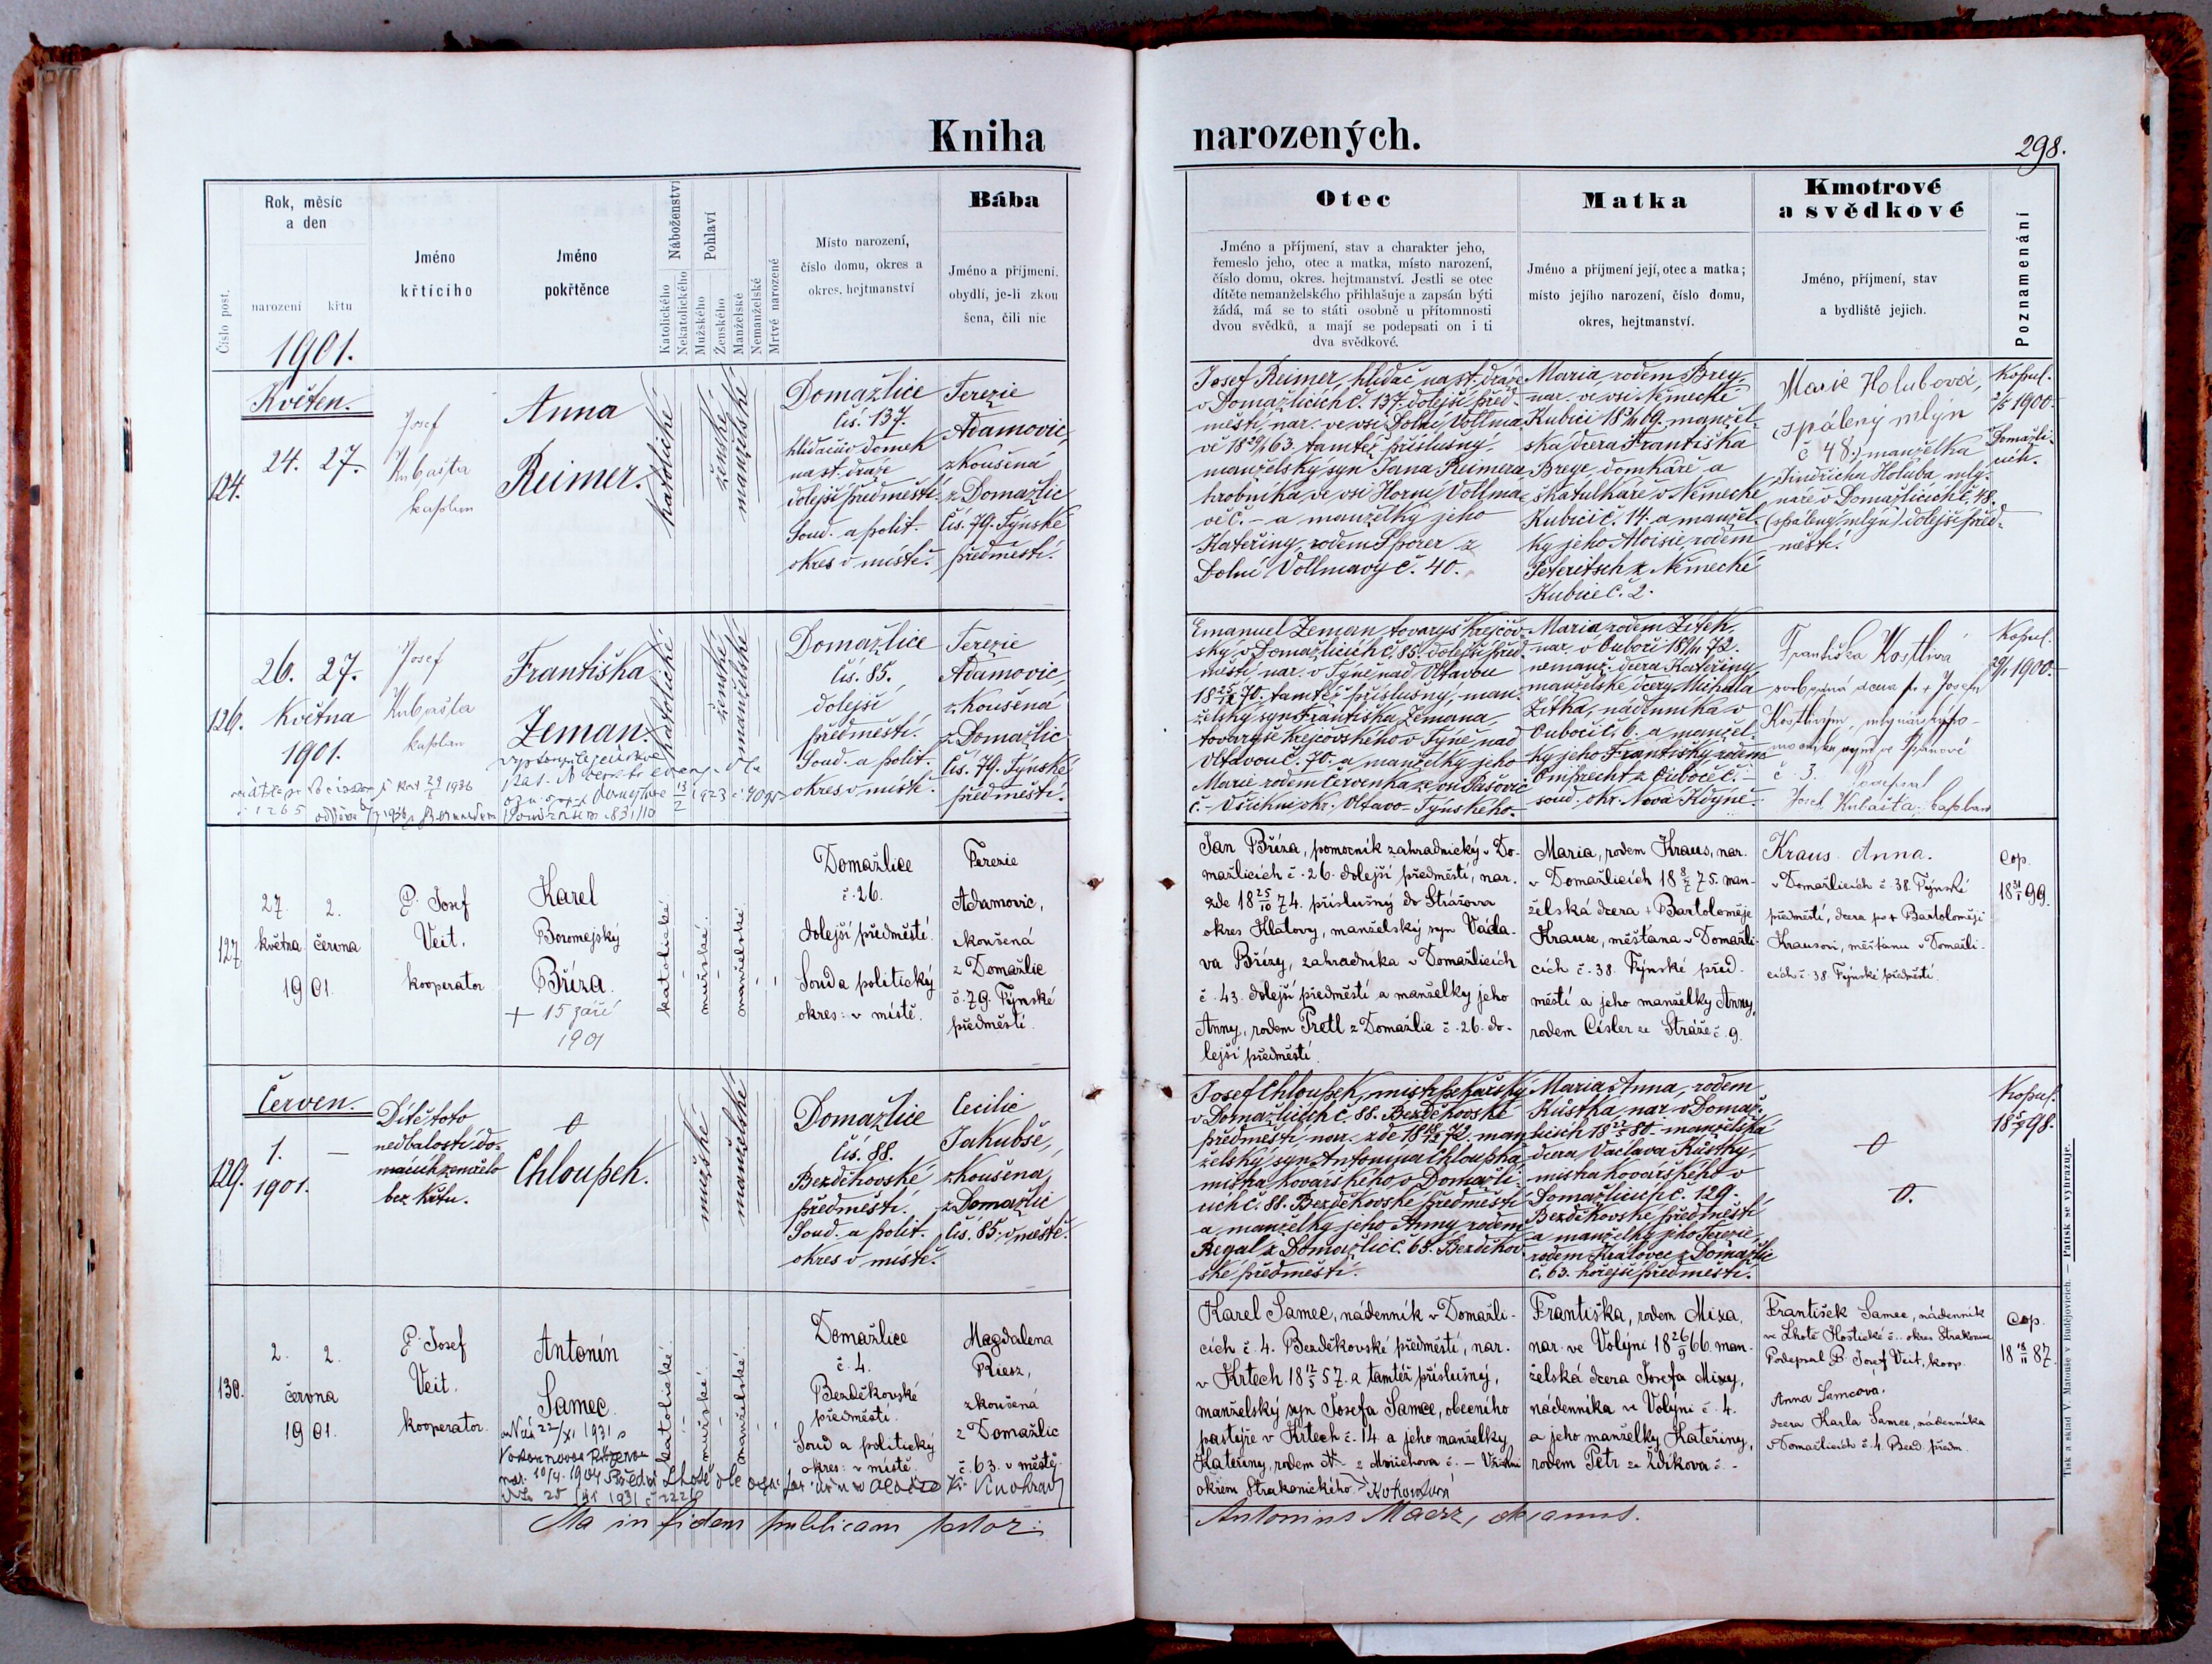 Kniha
narozených.
298.
Číslo post.
Rok, měsíc
a den
narození křtu
1901.
Jméno
křtícího
Jméno
pokřtěnce
Náboženství
Katolického
Nekatolického
Pohlaví
Mužského
Ženského
Manželské
Nemanželské
Mrtvě narozené
Místo narození,
číslo domu, okres a
okres. hejtmanství
Bába
Jméno a příjmení.
obydlí, je-li zkou
šena, čili nic
Otec
Jméno a příjmení, stav a charakter jeho,
řemeslo jeho, otec a matka, místo narození,
číslo domu, okres. hejtmanství. Jestli se otec
dítěte nemanželského přihlašuje a zapsán býti
žádá, má se to státi osobně u přítomnosti
dvou svědků, a mají se podepsati on i ti
dva svědkové.
Matka
Jméno a příjmení její, otec a matka;
místo jejího narození, číslo domu,
okres, hejtmanství.
Kmotrové
a svědkové
Jméno, příjmení, stav
a bydliště jejich.
Poznamenání
Květen.
124.
24. 27.
Josef
Kubašta
kaplan
Anna
Reimer.
katolické
ženské
manželské
Domažlice
čís. 137.
hlídačův domek
na st. dráze
dolejší předměstí
Soud. a polit.
okres v místě.
Terezie
Adamovic,
zkoušená
z Domažlic
čís. 79. Týnské
předměstí.
Josef Reimer, hlídač na st. dráze
v Domažlicích č. 137. dolejší před-
městí, nar. ve vsi Dolní Vollma
vě 18 29/1 63. tamtéž příslušný,
manželský syn Jana Reimera
hrobníka ve vsi Horní Vollma
vě č. – a manželky jeho
Kateřiny, rodem Sporer z
Dolní Vollmavy č. 40.
Maria, rodem Breg,
nar. ve vsi Německé
Kubici 69. manžel-
ská dcera Františka
Brege, domkáře a
škatulkáře v Německé
Kubici č. 14. a manžel-
ky jeho Aloisie, rodem
Peteritsch z Německé
Kubice č. 2.
Marie Holubová,
(spálený mlýn
č 48.) manželka
Jindřicha Holuba mly-
náře v Domažlicích č. 48.
(spálený mlýn) dolejší před-
městí.
Kopul.
2/5 1900.
Domažli-
cích.
126.
26. 27.
Května
1901.
Josef
Kubašta
kaplan
Františka
Zeman.
katolické
ženské
manželské
Domažlice
čís. 85.
dolejší
předměstí.
Soud. a polit.
okres v místě.
Terezie
Adamovic
zkoušená
z Domažlic
čís. 79. Týnské
předměstí.
Emanuel Zeman, tovaryš krejčov-
ský v Domažlicích č. 85. dolejší před-
městí, nar. v Týně nad Vltavou
18 25/12 70. tamtéž příslušný, man-
želský syn Františka Zemana,
tovaryše krejčovského v Týně nad
Vltavou č. 70. a manželky jeho
Marie rodem Červenka ze vsi Pašovic
č. – Všichni okr. Vltavo-Týnského.
Maria rodem Zítek,
nar. v Ouboči 72.
nemanž. dcera Kateřiny
manželské dcery Michala
Zítka, nádenníka v
Ouboči č. 6. a manžel-
ky jeho Františky rodem
soud. okr. Nová Kdýně.
Františka Kostlivá
svobodná dcera po + Josefu
č 3.
Josef Kubašta, kaplan
Kopul.
29/1 1900.
127.
27. 2.
května června
1901.
P. Josef
Veit.
kooperator.
Karel
Boromejský
Bříza.
+ 15 září
1901
katolické.
mužské.
manželské.
Domažlice
č. 26.
dolejší předměstí.
Soud a politický
okres: v místě.
Terezie
Adamovic,
zkoušená
z Domažlic
č. 79. Týnské
předměstí.
Jan Bříza, pomocník zahradnický v Do-
mažlicích č. 26. dolejší předměstí, nar.
zde 18 25/10 74. příslušný do Strážova
okres Klatovy, manželský syn Václa-
va Břízy, zahradníka v Domažlicích
č. 43. dolejší předměstí a manželky jeho
Anny, rodem Pretl z Domažlic č. 26. do-
lejší předměstí.
Maria, rodem Kraus, nar.
v Domažlicích 18 8/2 75. man-
želská dcera + Bartoloměje
Krause, měšťana v Domažli-
cích č. 38. Týnské před-
městí a jeho manželky Anny,
rodem Císler ze Stráže č. 9.
Kraus Anna.
v Domažlicích č. 38. Týnské
předměstí, dcera po + Bartoloměji
Krausovi, měšťanu v Domažli-
cích č. 38. Týnské předměstí.
Cop.
18 31/1 99.
Červen.
129.
1. –
1901.
Dítě toto
nedbalostí do-
mácích zemřelo
bez křtu.
Chloupek.
mužské
manželské
Domažlice
čís. 88.
Bezděkovské
předměstí.
Soud. a polit.
okres v místě.
Cecilie
Jakubše,
zkoušená,
z Domažlic
čís. 85. v městě.
Josef Chloupek, mistr pekařský
v Domažlicích č. 88. Bezděkovské
předměstí, nar. zde 18 18/12 72. man
želský syn Antonína Chloupka
mistra kovářského v Domažli-
cích č. 88. Bezděkovské předměstí
a manželky jeho Anny rodem
Regal z Domažlic č. 68. Bezděkov-
ské předměstí.
Maria Anna, rodem
Kůstka, nar. v Domaž-
licích 80. manželská
dcera Václava Kůstky,
mistra kovářského v
Domažlicích č. 129.
Bezděkovské předměstí
a manželky jeho Terezie,
rodem Královec z Domažlic
č. 63. hořejší předměstí.
Kopul.
98.
130.
2. 2.
června
1901.
P. Josef
Veit.
kooperator.
Antonín
Samec.
katolické.
mužské.
manželské.
Domažlice
č. 4.
Bezděkovské
předměstí.
Soud a politický
okres: v místě.
Magdalena
Riesz,
zkoušená
z Domažlic
č. 63. v městě.
Karel Samec, nádenník v Domažli-
cích č. 4. Bezděkovské předměstí, nar.
v Krtech 18 12/5 57. a tamtéž příslušný,
manželský syn Josefa Samce, obecního
pastýře v Krtech č. 14 a jeho manželky
Kateřiny, rodem N. z Mnichova č. – Všichni
okresu Strakonického.
Františka, rodem Mixa,
nar. ve Volyni 18 26/9 66. man-
želská dcera Josefa Mixy,
nádenníka ve Volyni č. 4.
a jeho manželky Kateřiny,
rodem Petr ze Zdíkova č. –
František Samec, nádenník
ve Lhotě Hostické č. – okres Strakonice
Podepsal P. Josef Veit, koop.
Anna Samcová.
dcera Karla Samce, nádenníka
v Domažlicích č. 4 Bezd. předm.
Cop.
18 13/11 87.
Ita in fidem publicam testor:
Antonius Maerz, decanus.
Tisk a sklad V. Matouše v Budějovicích. — Patisk se vyhrazuje.